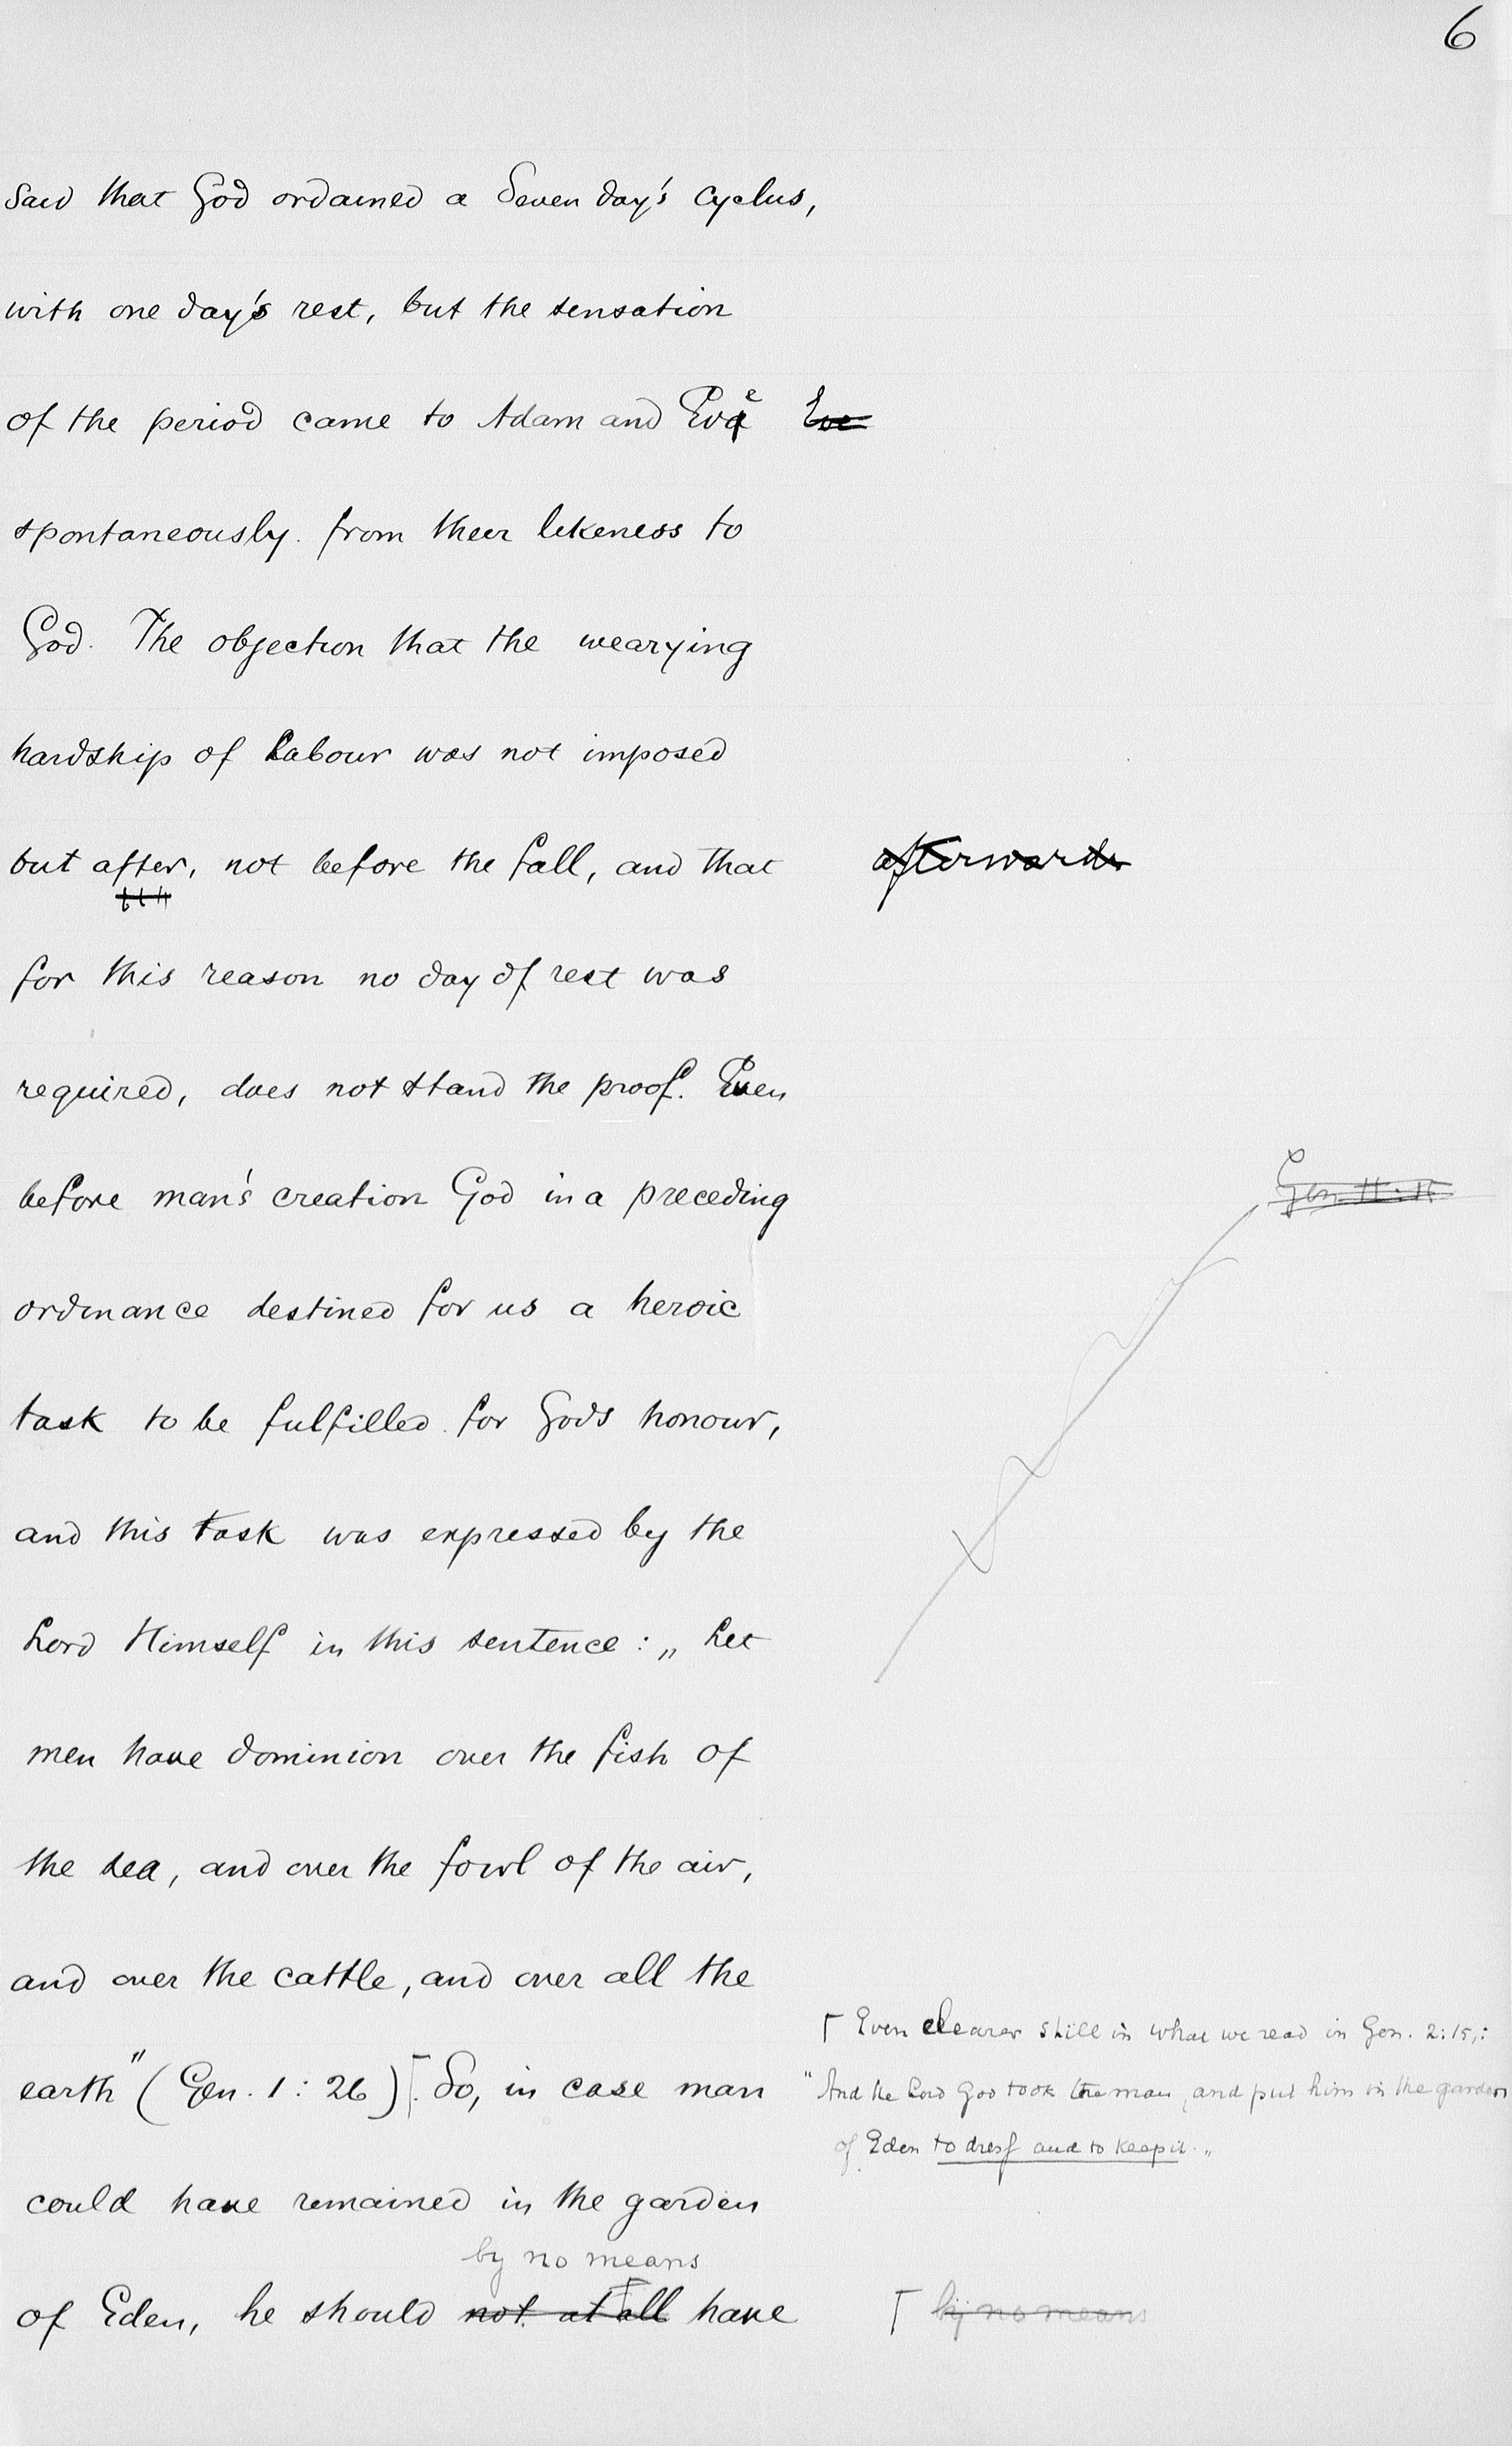 6
said that God ordained a Seven day's cyclus,
with one day's rest, but the sensation
of the period came to Adam and Eve Eve
spontaneously. from their likeness to
God. The objection that the wearying
hardship of Labour was not imposed
but after, not before the fall, and that afterwards
for this reason no day of rest was
required, does not stand the proof. Even
before man's creation God in a preceding
Gen. II:15
ordinance destined for us a heroic
task to be fulfilled for Gods honour,
and this task was expressed by the
Lord Himself in this sentence: „Let
men have dominion over the fish of
the sea, and over the fowl of the air,
and over the cattle, and over all the
earth" (Gen. 1: 26)⌈. So, in case man
⌈ Even clearer still in what we read in Gen. 2:15,:
"And the Lord God took the man, and put him in the garden
of Eden to dress and to keep it.„
could have remained in the garden
by no means
of Eden, he should not at all have ⌈ by no means